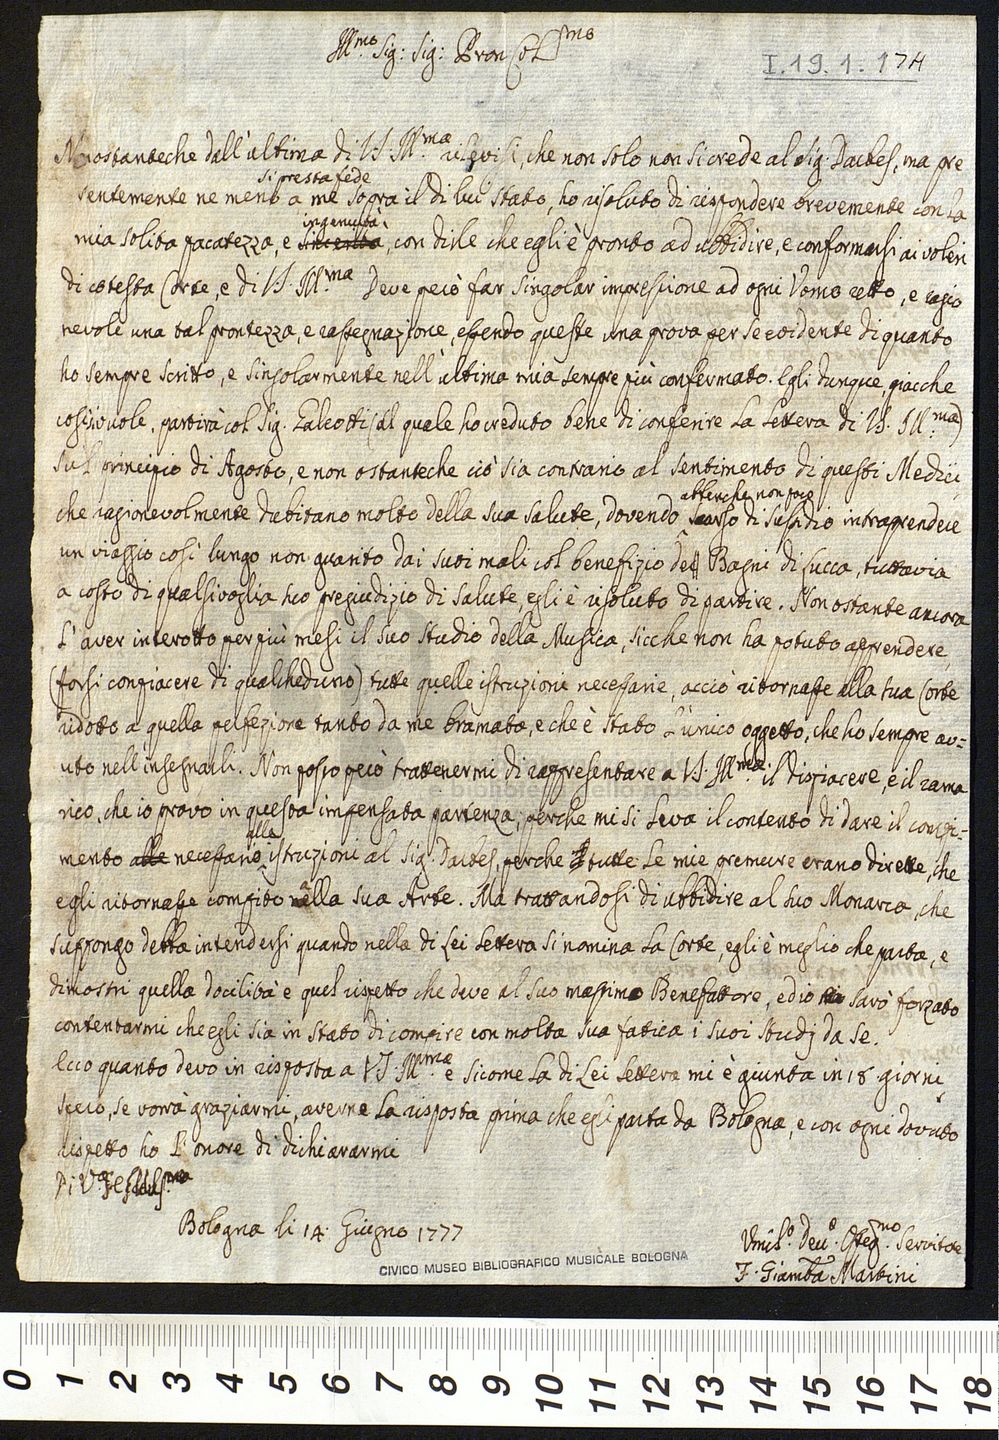 Ill.mo Sig: Sig: Pron Col.mo
I.19.1.174
Nonostanteche dall'ultima di V.S. Ill.ma rilevisi, che non solo non si crede al Sig. Dactes, ma pre
si presta fede
sentemente ne meno a me sopra il di lui stato, ho risoluto di rispondere brevemente con la
ingenuità
mia solita pacatezza, e sincerità, con dirle che egli è pronto ad ubbidire, e conformarsi ai voleri
di cotesta Corte, e di V.S. Ill.ma Deve perciò far singolar impressione ad ogni Uomo retto, e ragio
nevole una tal prontezza, e rassegnazione, essendo queste una prova per se evidente di quanto
ho sempre scritto, e singolarmente nell'ultima mia sempre più confermato. Egli dunque, giacche
così vuole, partirà col Sig. Galeotti (al quale ho creduto bene di conferire la lettera di V.S. Ill.ma)
sul principio di Agosto, e non ostanteche ciò sia contrario al sentimento di questi Medici,
atteso che non poco
che ragionevolmente dubitano molto della sua salute, dovendo scarso di sussidio intraprendere
un viaggio così lungo non guarito dai suoi mali col benefizio dei Bagni di Lucca, tuttavia
a costo di qualsivoglia suo pregiudizio di salute, egli è risoluto di partire. Non ostante ancora
l'aver interotto per più mesi il suo studio della Musica, sicche non ha potuto apprendere,
(forsi con piacere di qualcheduno) tutte quelle istruzioni necessarie, acciò ritornasse alla sua Corte
ridotto a quella perfezione tanto da me bramata, e che è stato l'unico oggetto, che ho sempre av=
uto nell'insegnarli. Non posso però trattenermi di rappresentare a V.S. Ill.ma il dispiacere, e il rama
rico, che io provo in questa impensata partenza, perche mi si leva il contento di dare il compi=
alle
mento alle necessarie istruzioni al Sig. Dactes, perche tutte le mie premure erano dirette, che
egli ritornasse compito nella sua Arte. Ma trattandosi di ubbidire al suo Monarca, che
suppongo debba intendersi quando nella di Lei lettera si nomina la Corte, egli è meglio che parta, e
dimostri quella docilità e quel rispetto che deve al suo massimo Benefattore, ed io sarò forzato
contentarmi che egli sia in stato di compire con molta sua fatica i suoi studj da se.
Ecco quanto devo in risposta a V.S. Ill.ma e sicome la di Lei lettera mi è giunta in 18 giorni
spero, se vorrà graziarmi, averne la risposta prima che egli parta da Bologna, e con ogni dovuto
rispetto ho l'onore di dichiararmi
Di V.
Bologna li 14. Giugno 1777
Umil.o Dev.o Obbg.mo Servitore
F. Giamb.a Martini
CIVICO MUSEO BIBLIOGRAFICO MUSICALE BOLOGNA
0 1 2 3 4 5 6 7 8 9 10 11 12 13 14 15 16 17 18